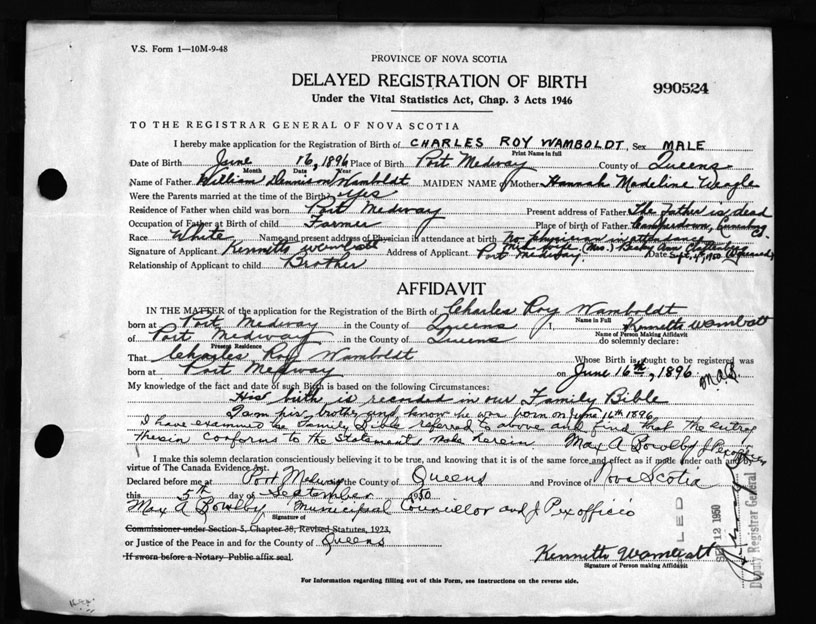 V.S. Form 1—10M-9-48
PROVINCE OF NOVA SCOTIA
DELAYED REGISTRATION OF BIRTH
990524
Under the Vital Statistics Act, Chap. 3 Acts 1946
TO THE REGISTRAR GENERAL OF NOVA SCOTIA
I hereby make application for the Registration of Birth of CHARLES ROY WAMBOLDT, Sex MALE
Print Name in full
Date of Birth June 16, 1896 Place of Birth Port Medway County of Queens
Month Date Year
Name of Father William Dennison Wamboldt MAIDEN NAME of Mother Hannah Madeline Weagle
Were the Parents married at the time of the Birth yes
Residence of Father when child was born Port Medway Present address of Father The father is dead
Occupation of Father at Birth of child Farmer Place of birth of Father Camperdown, Lunenburg
Race White Name and present address of Physician in attendance at birth No physician in attendance
Signature of Applicant Kenneth Address of Applicant Port Medway Date Sept. 1950
Relationship of Applicant to child Brother
AFFIDAVIT
IN THE MATTER of the application for the Registration of the Birth of Charles Roy Wamboldt
Name in Full
born at Port Medway in the County of Queens I, Kenneth
Name of Person Making Affidavit
of Port Medway in the County of Queens do solemnly declare:
Present Residence
That Charles Roy Wamboldt Whose Birth is sought to be registered was
born at Port Medway on June 16th, 1896
My knowledge of the fact and date of such Birth is based on the following Circumstances:
His birth is recorded in our Family Bible
I am his brother and know he was born on June 16th 1896
I have examined the Family Bible referred to above and find that the entry
therein conforms to the statement made herein. Max A Bowlby J P exofficio
I make this solemn declaration conscientiously believing it to be true, and knowing that it is of the same force and effect as if made under oath and by
virtue of The Canada Evidence Act.
Declared before me at Port Medway the County of Queens and Province of Nova Scotia
this 5th day of September 1950
Max A Bowlby Municipal Councillor and J P exofficio
Signature of
Commissioner under Section 5, Chapter 38, Revised Statutes, 1923,
or Justice of the Peace in and for the County of Queens
If sworn before a Notary Public affix seal.
Kenneth
Signature of Person making Affidavit
SEP 12 1950
Deputy Registrar General
For Information regarding filling out of this Form, see Instructions on the reverse side.